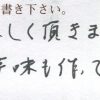 書き下さい。
しく頂きま
味も作,て